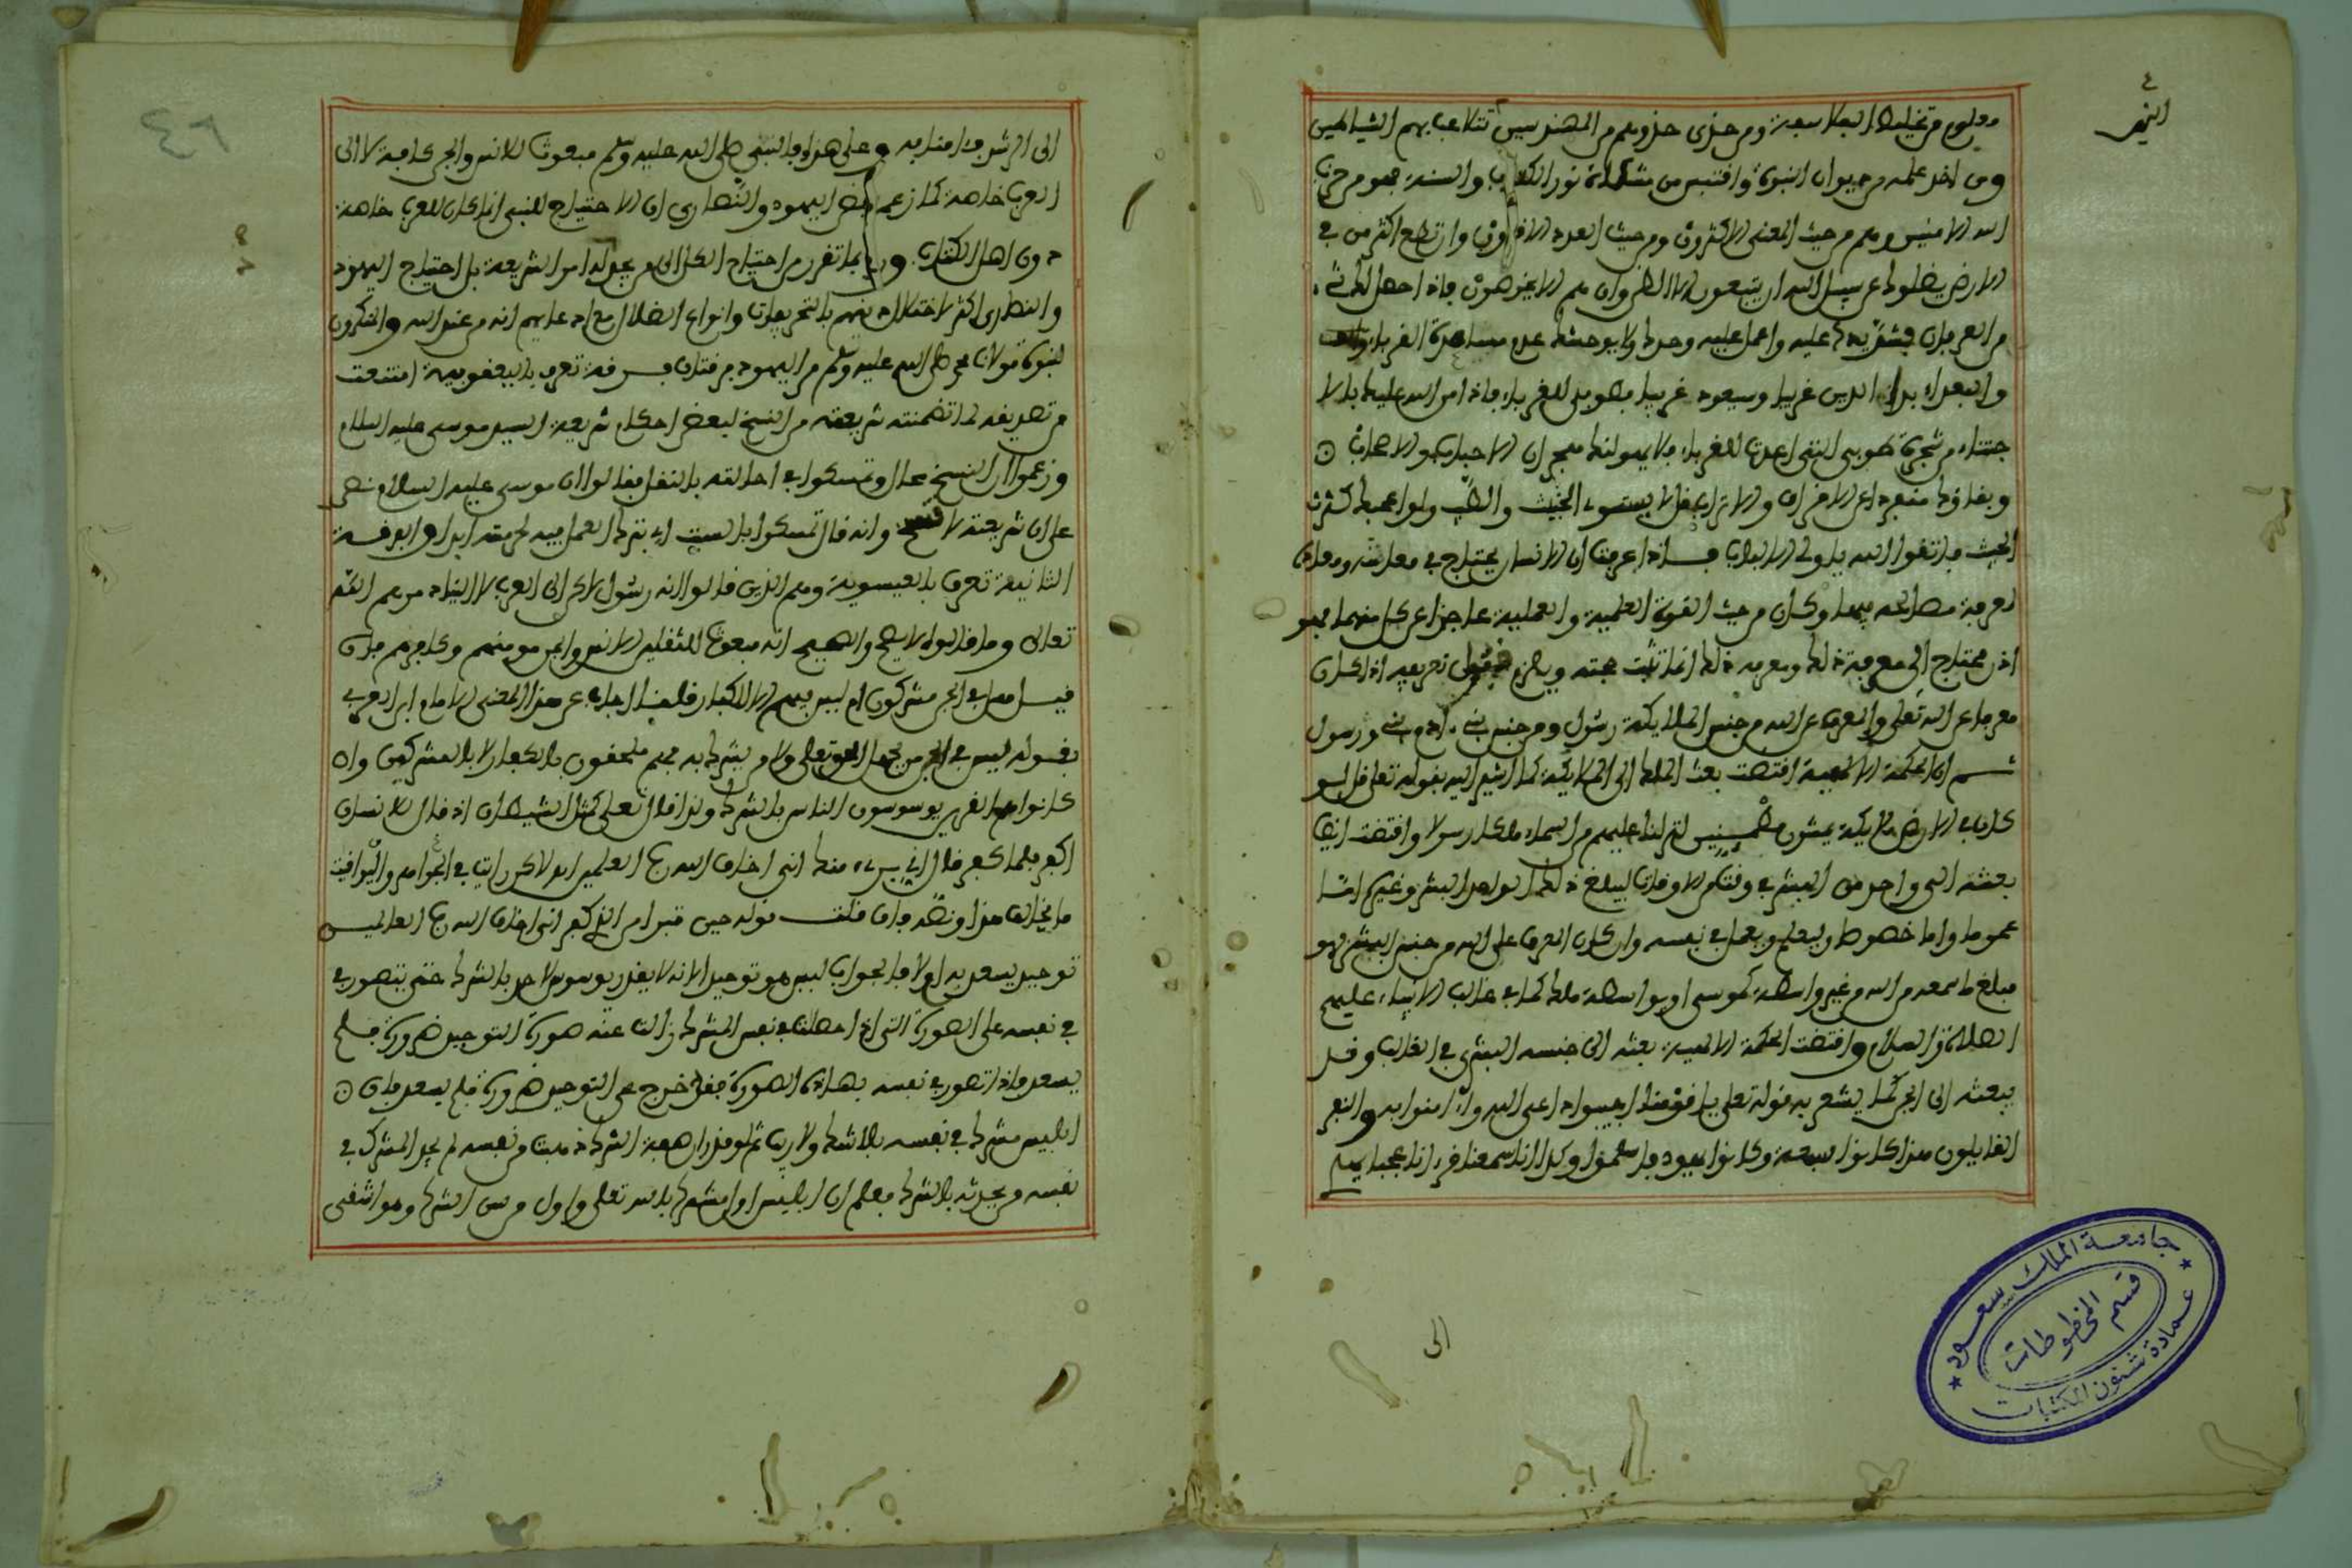 ٤
النمر
معلوم من تخليط الفلاسفة ومن حذى حذوهم من المهندسين تتلاعب بهم الشياطين
ومن اخذ علمه من ديوان النبوة واقتبس من مشكاة نور الكتاب والسنة فهو من حزب
الله الامنين وهم من حيث المعنى الاكثرون ومن حيث العدد الاقلون وان تطع اكثر من في
الارض يضلوك عن سبيل الله ان يتبعون الا الظن وان هم الا يخرصون فاذا حصل لك شيء
من العرفان فشد يدك عليه واعمل عليه وحدك ولا يوحشك عدم مساعدة الغرباء
والبعداء بدا الدين غريبا وسيعود غريبا فطوبى للغرباء فاذا من الله عليك بالا
جتناء من شجرة طوبى التي اعدت للغرباء فلا يهولنك هجران الاحباب والاصحاب
وبقاؤك منفردا عن الاخران والاتراب قل لا يستوي الخبيث والطيب ولو اعجبك كثرة
الخبيث فاتقوا الله يا اولي الالباب فاذا عرفت ان الانسان يحتاج في معاشه ومعاده
لمعرفة مصالحه فيهما وكان من حيث القوة العلمية والعملية عاجزا عن كل منهما فهو
اذن محتاج الى معرفة ذلك ومعرفه ذلك انما تثبت حجته ويلزم قبول تعريفه اذا كان
معرفا عن الله تعالى والمعرف عن الله من جنس الملايكة رسول ومن جنس بني ءادم نبي ورسول
ثم ان الحكمة الالهية اقتضت بعث الملك الى الملايكة كما اشير اليه بقوله تعالى قل لو
كان في الارض ملايكة يمشون مطمينين لنزلنا عليهم من السماء ملكا رسولا واقتضت ايضا
بعثه الى واحد من البشر في وقت من الاوقات ليبلغ ذلك الواحد البشر وغيرهم اما
عموما واما خصوصا وليعلم ويعمل في نفسه وان كان المعرف على الله من جنس البشر فهو
مبلغ ما سمعه من الله من غير واسطة كموسى او بواسطة ملك كما في غالب الانبياء عليهم
الصلاة والسلام واقتضت الحكمة الالهية بعثه الى جنسه البشري في الغالب وقد
يبعثه الى الجن كما يشعر به قوله تعالى يا قومنا اجيبوا داعي الله وءامنوا به والنفر
القايلون هذا كانوا سبعة وكانوا يهود فاسلموا وكذا انا سمعنا قرءانا عجبا يهدي
الى
الى الرشد فامنا به وعلى هذا فالنبي صلى الله عليه وسلم مبعوث للانس والجن كافة لا الى
العرب خاصة كما زعمه بعض اليهود والنصارى ان الاحتياج للنبي انما كان للعرب خاصة
دون اهل الكتاب ورد بما تقرر من احتياج الكل الى من يجدد امر الشريعة بل احتياج اليهود
والنصارى اكثر لاختلال دينهم بالتحريفات وانواع الضلال مع ادعايهم انه من عند الله والمنكرون
لنبوة مولانا محمد صلى الله عليه وسلم من اليهود فرقتان فرقة تعرف باليعقوبية امتنعت
من تصديقه لما تضمنته شريعته من النسخ لبعض احكام شريعة السيد موسى عليه السلام
وزعموا ان النسخ محال وتمسكوا في احالته بالنقل فقالوا ان موسى عليه السلام نص
على ان شريعته لا تنسخ وانه قال تمسكوا بالسبت اي بترك العمل فيه لحرمته ابدا والفرقة
الثانية تعرف بالعيسوية وهم الذين قالوا انه رسول لاكن الى العرب لا اليناد مرهم الله
تعالى وما قالوه لا يصح والصحيح انه مبعوث للثقلين الانس والجن مومنهم وكافرهم فان
قيل هل في الجن مشركون ام ليس فيهم الا الكفار قلنا اجاب عن هذا المعنى الامام ابن العربي
بقوله ليس في الجن من يجهل الحق تعالى ولا من يشرك به فهم ملحقون بالكفار لا بالمشركين وان
كانوا هم الذين يوسوسون الناس بالشرك ولذا قال تعالى كمثل الشيطان اذ قال للانسان
اكفر فلما كفر قال اني بريء منك اني اخاف الله رب العلمين اه لاكن رايت في الجواهر واليواقيت
ما يخالف هذا ونصه فان قلت قوله حين تبرا من الذي كفر اني اخاف الله رب العالمين
توحيد يسعد به اولا فالجواب ليس هو توحيد الانه لا يقدر يوسوس لاحد بالشرك حتى يتصور في
في نفسه على الصورة التي اذا حصلت في نفس المشرك زالت عنه صورة التوحيد ضرورة فلم
يسعد فاذا تصور في نفسه بهذه الصورة فقد خرج عن التوحيد ضرورة فلم يسعد فان
ابليس مشرك في نفسه بلا شك ولا ريب ثم لو قدر ان صفة الشرك ذهبت من نفسه لم يجد المشرك في
نفسه من يحدثه بالشرك فعلم ان ابليس اول مشرك بالله تعالى واول من سن الشرك وهو اشقى
جامعة الملك سعود
قسم المخطوطات
عمادة شئون المكتبات